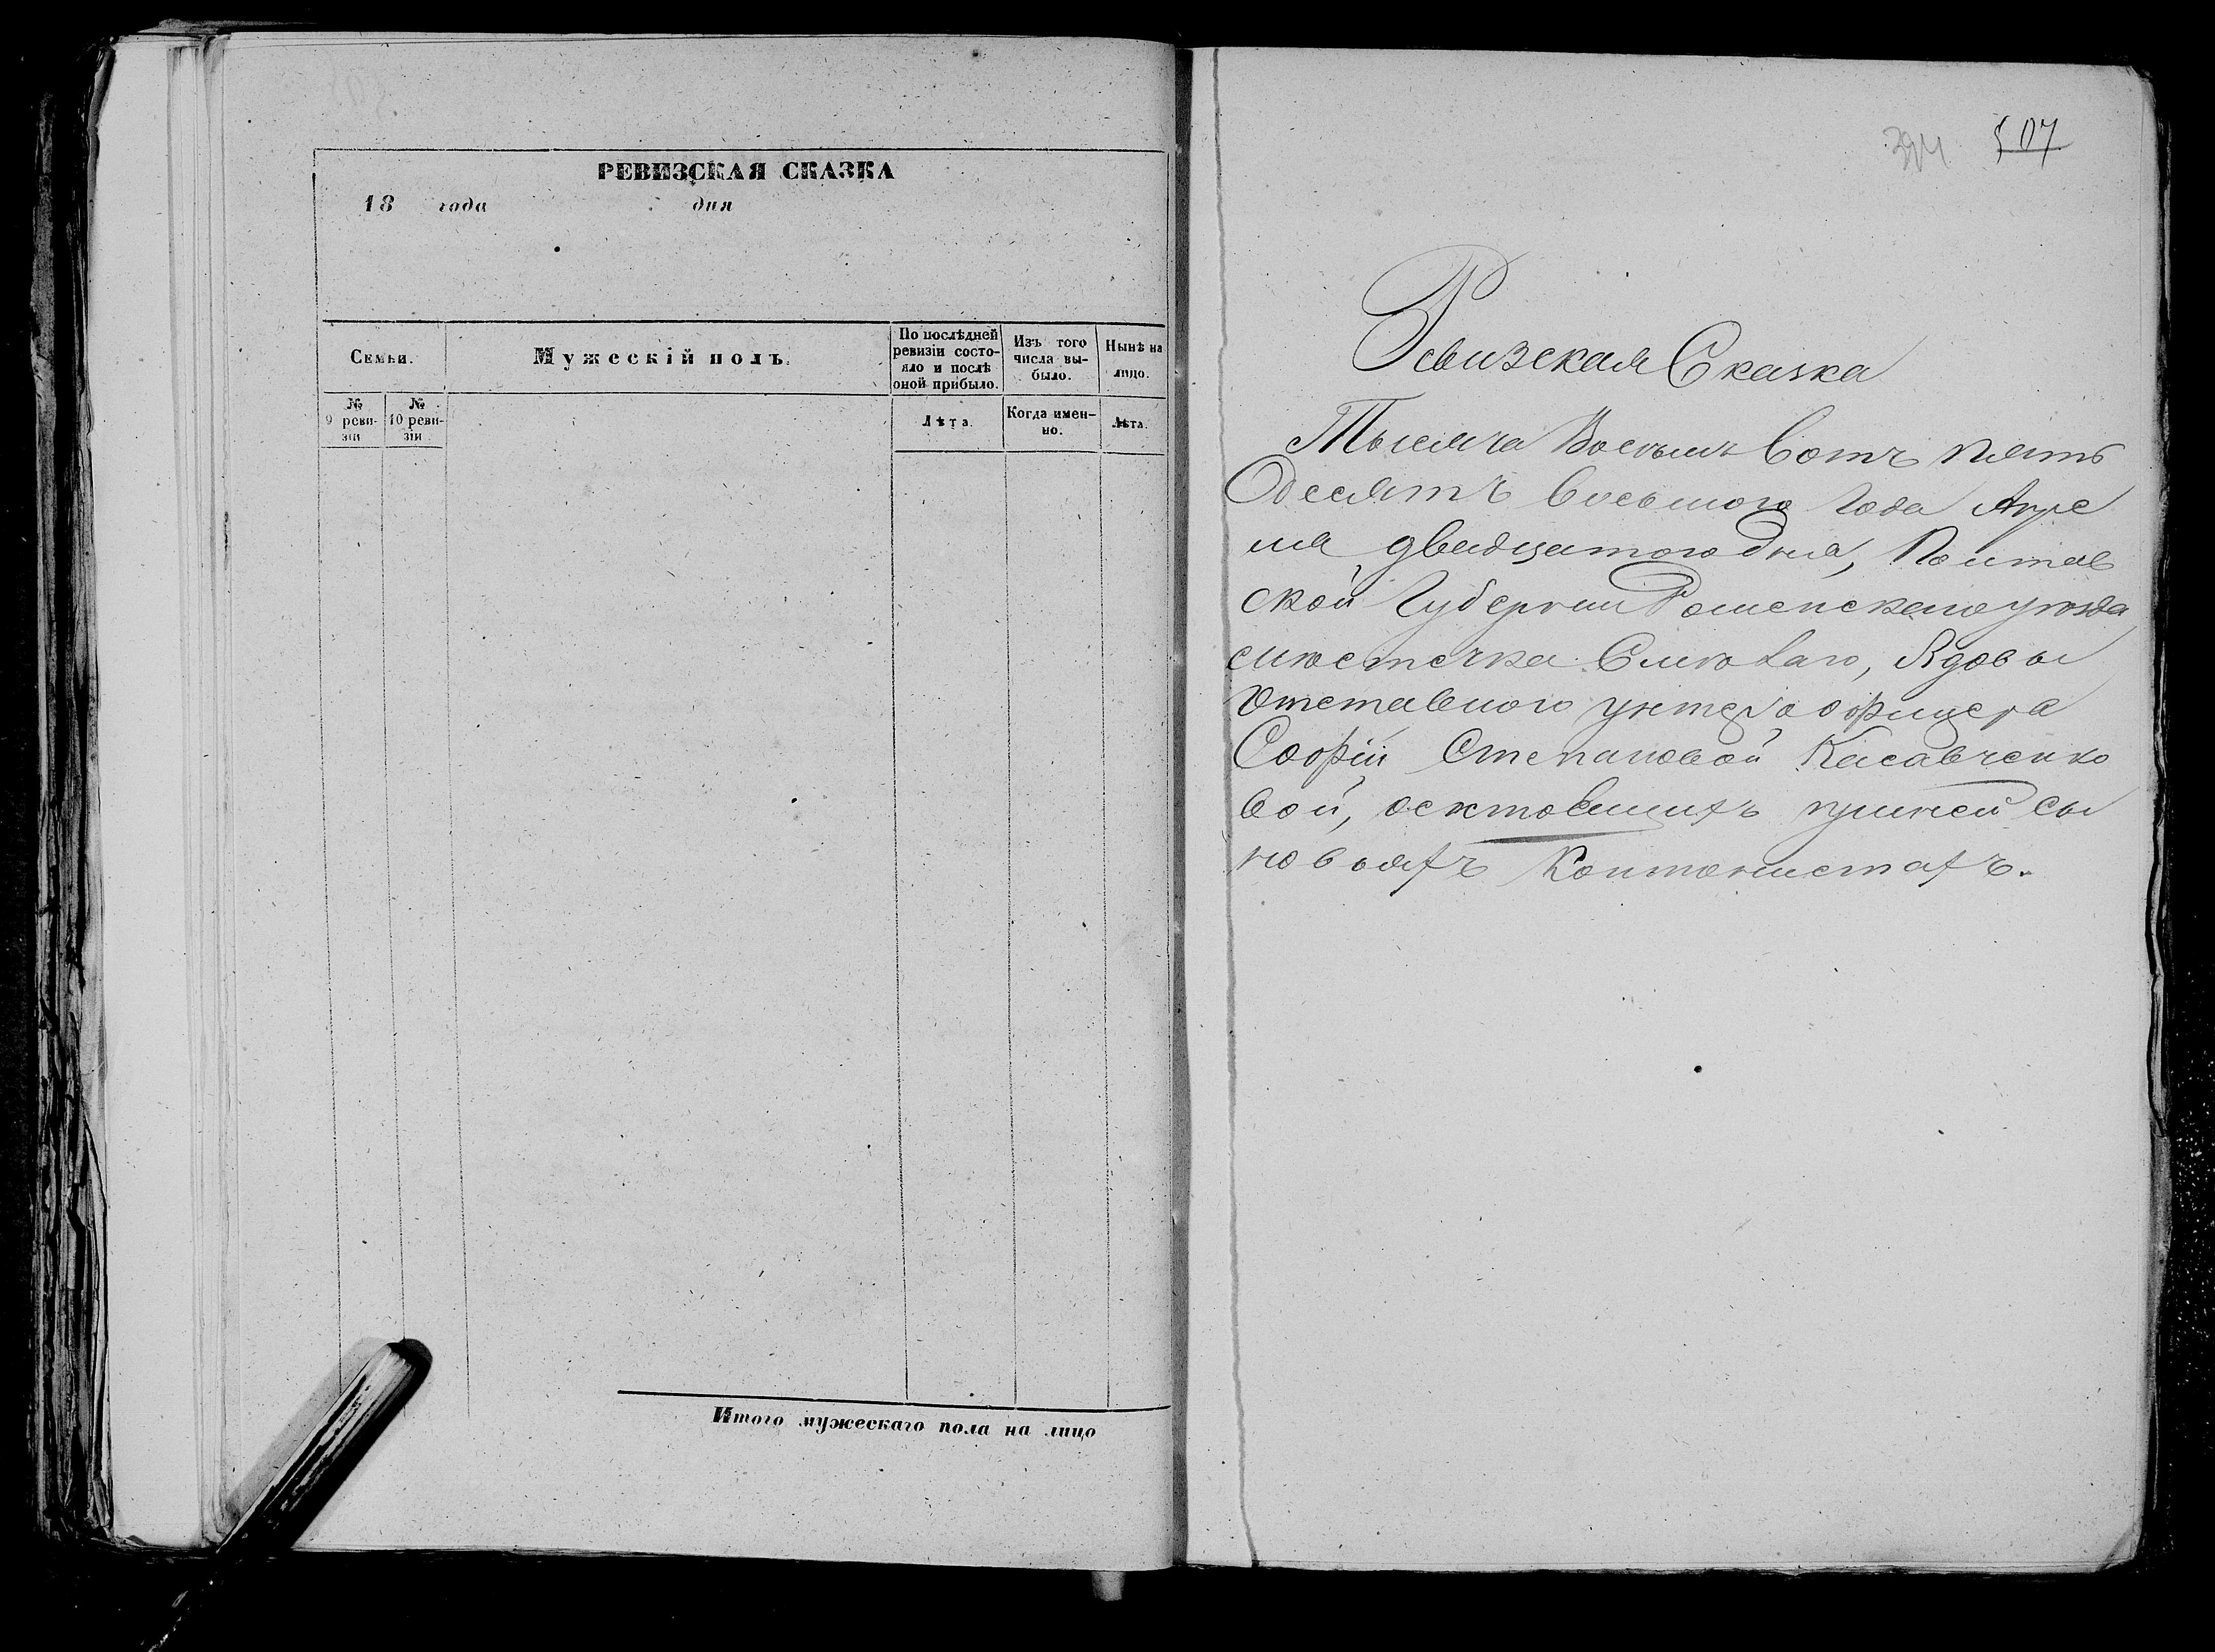 РЕВИЗСКАЯ СКАЗКА
18 года дня
Семьи.
Мужескій полъ.
По послѣдней ревизіи состояло и послѣ оной прибыло.
Изъ того числа выбыло.
Нынѣ на лицо.
№ 9 ревизіи
№ 10 ревизіи
Лѣта.
Когда именно.
Лѣта.
Итого мужескаго пола на лицо
507
Ревизская Сказка
Тысяча Восемь Сотъ пять
Десятъ восьмого Года Апре
ля двадцатого Дня, Полтав
ской Губерніи Роменского уѣзда
мѣстечка Смѣлаго, Вдовы
Отставного унтеръ офицера
Софіи Степановой Касавченко
вой, осктовшихъ приней сы
новьяхъ Контонистахъ.